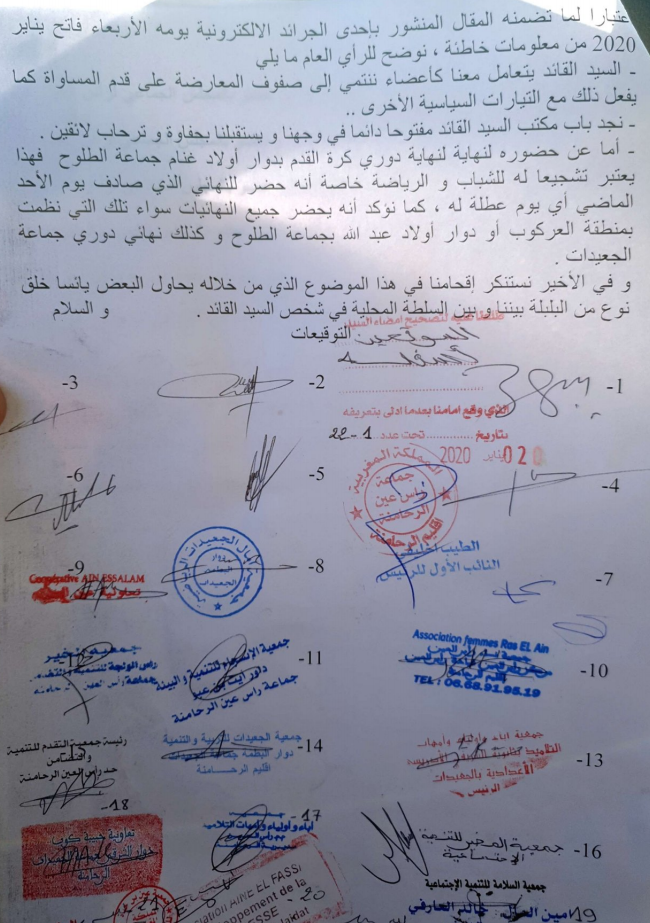 عتبارا لما تضمنه المقال المنشور بإحدى الجرائد الالكترونية يومه الأربعاء فاتح يناير
2020 من معلومات خاطئة ، نوضح للرأي العام ما يلي
- السيد القائد يتعامل معنا كأعضاء ننتمي إلى صفوف المعارضة على قدم المساواة كما
يفعل ذلك مع التيارات السياسية الأخرى ..
- نجد باب مكتب السيد القائد مفتوحا دائما في وجهنا و يستقبلنا بحفاوة و ترحاب لائقين .
- أما عن حضوره لنهاية لنهاية دوري كرة القدم بدوار أولاد غنام جماعة الطلوح فهذا
يعتبر تشجيعا له للشباب و الرياضة خاصة أنه حضر للنهائي الذي صادف يوم الأحد
الماضي أي يوم عطلة له ، كما نؤكد أنه يحضر جميع النهائيات سواء تلك التي نظمت
بمنطقة العركوب أو دوار أولاد عبد الله بجماعة الطلوح و كذلك نهائي دوري جماعة
الجعيدات .
و في الأخير نستنكر إقحامنا في هذا الموضوع الذي من خلاله يحاول البعض يائسا خلق
نوع من البلبلة بيننا و بين السلطة المحلية في شخص السيد القائد . و السلام
التوقيعات
لتصحيح امضاء السيد
الموقعين
أسفله
1-
2-
3-
الذي وقع امامنا بعدما ادلى بتعريفه
بتاريخ ............ تحت عدد 1-22
020 يناير 2020
4-
5-
6-
المملكة المغربية
جماعة
راس عين
الرحامنة
اقليم الرحامنة
الطيب
النائب الأول للرئيس
7-
8-
دوار
الجعيدات
9-
Cooperative AIN ESSALAM
تعاونية
10-
Association femmes Ras EL Ain
TEL : 06.68.91.96.19
11-
جمعية
للتنمية و البيئة
جماعة راس عين الرحامنة
12-
جمعية
راس
13-
جمعية اباء وأولياء وأمهات
التلاميذ
الاعدادية بالجعيدات
الرئيس
14-
جمعية الجعيدات للتربية والتنمية
دوار
اقليم الرحامنة
رئيسة جمعية التقدم للتنمية
والتضامن
حد راس العين الرحامنة
16-
جمعية
للتنمية
الاجتماعية
17-
جمعية
آباء وأولياء وأمهات التلاميذ
18-
تعاونية
الرحامنة
19
جمعية السلامة للتنمية الإجتماعية
امين المال
20-
AINE EL FASSI
21